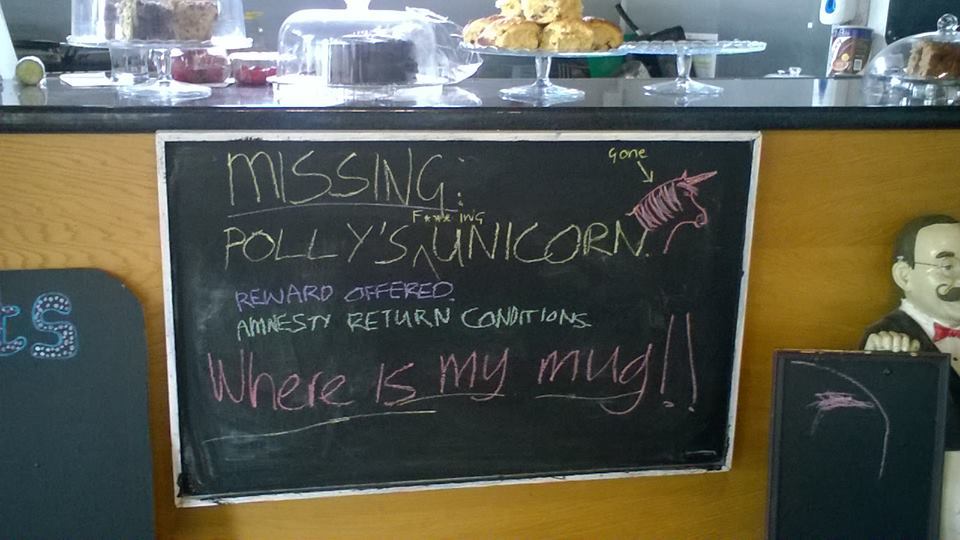 MISSING:
Gone
F***ING
POLLY'S UNICORN.
REWARD OFFERED.
AMNESTY RETURN CONDITIONS.
Where is my mug!!